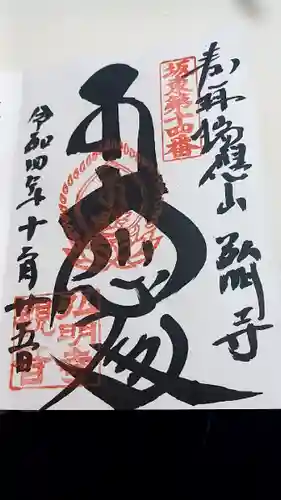 奉拝 瑞應山 弘明寺
坂東第十四番
令和四年十二月廿五日
弘明寺
観音